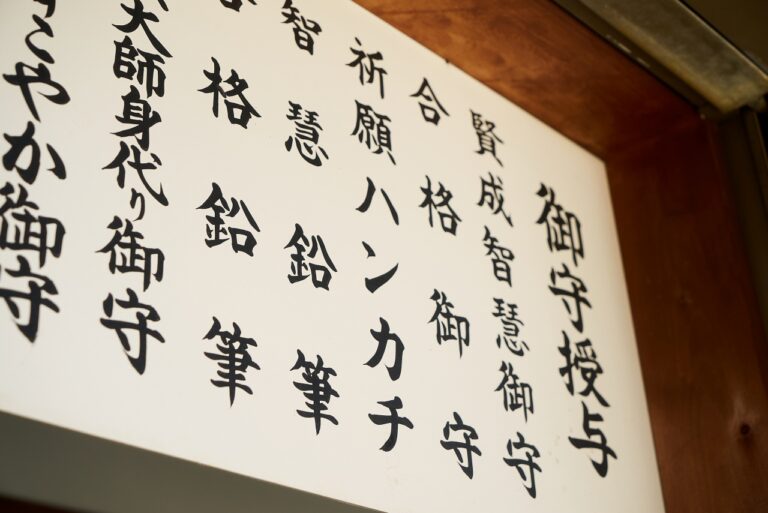 御守授与
賢成智慧御守
合格御守
祈願ハンカチ
智慧鉛筆
合格鉛筆
大師身代り御守
こやか御守